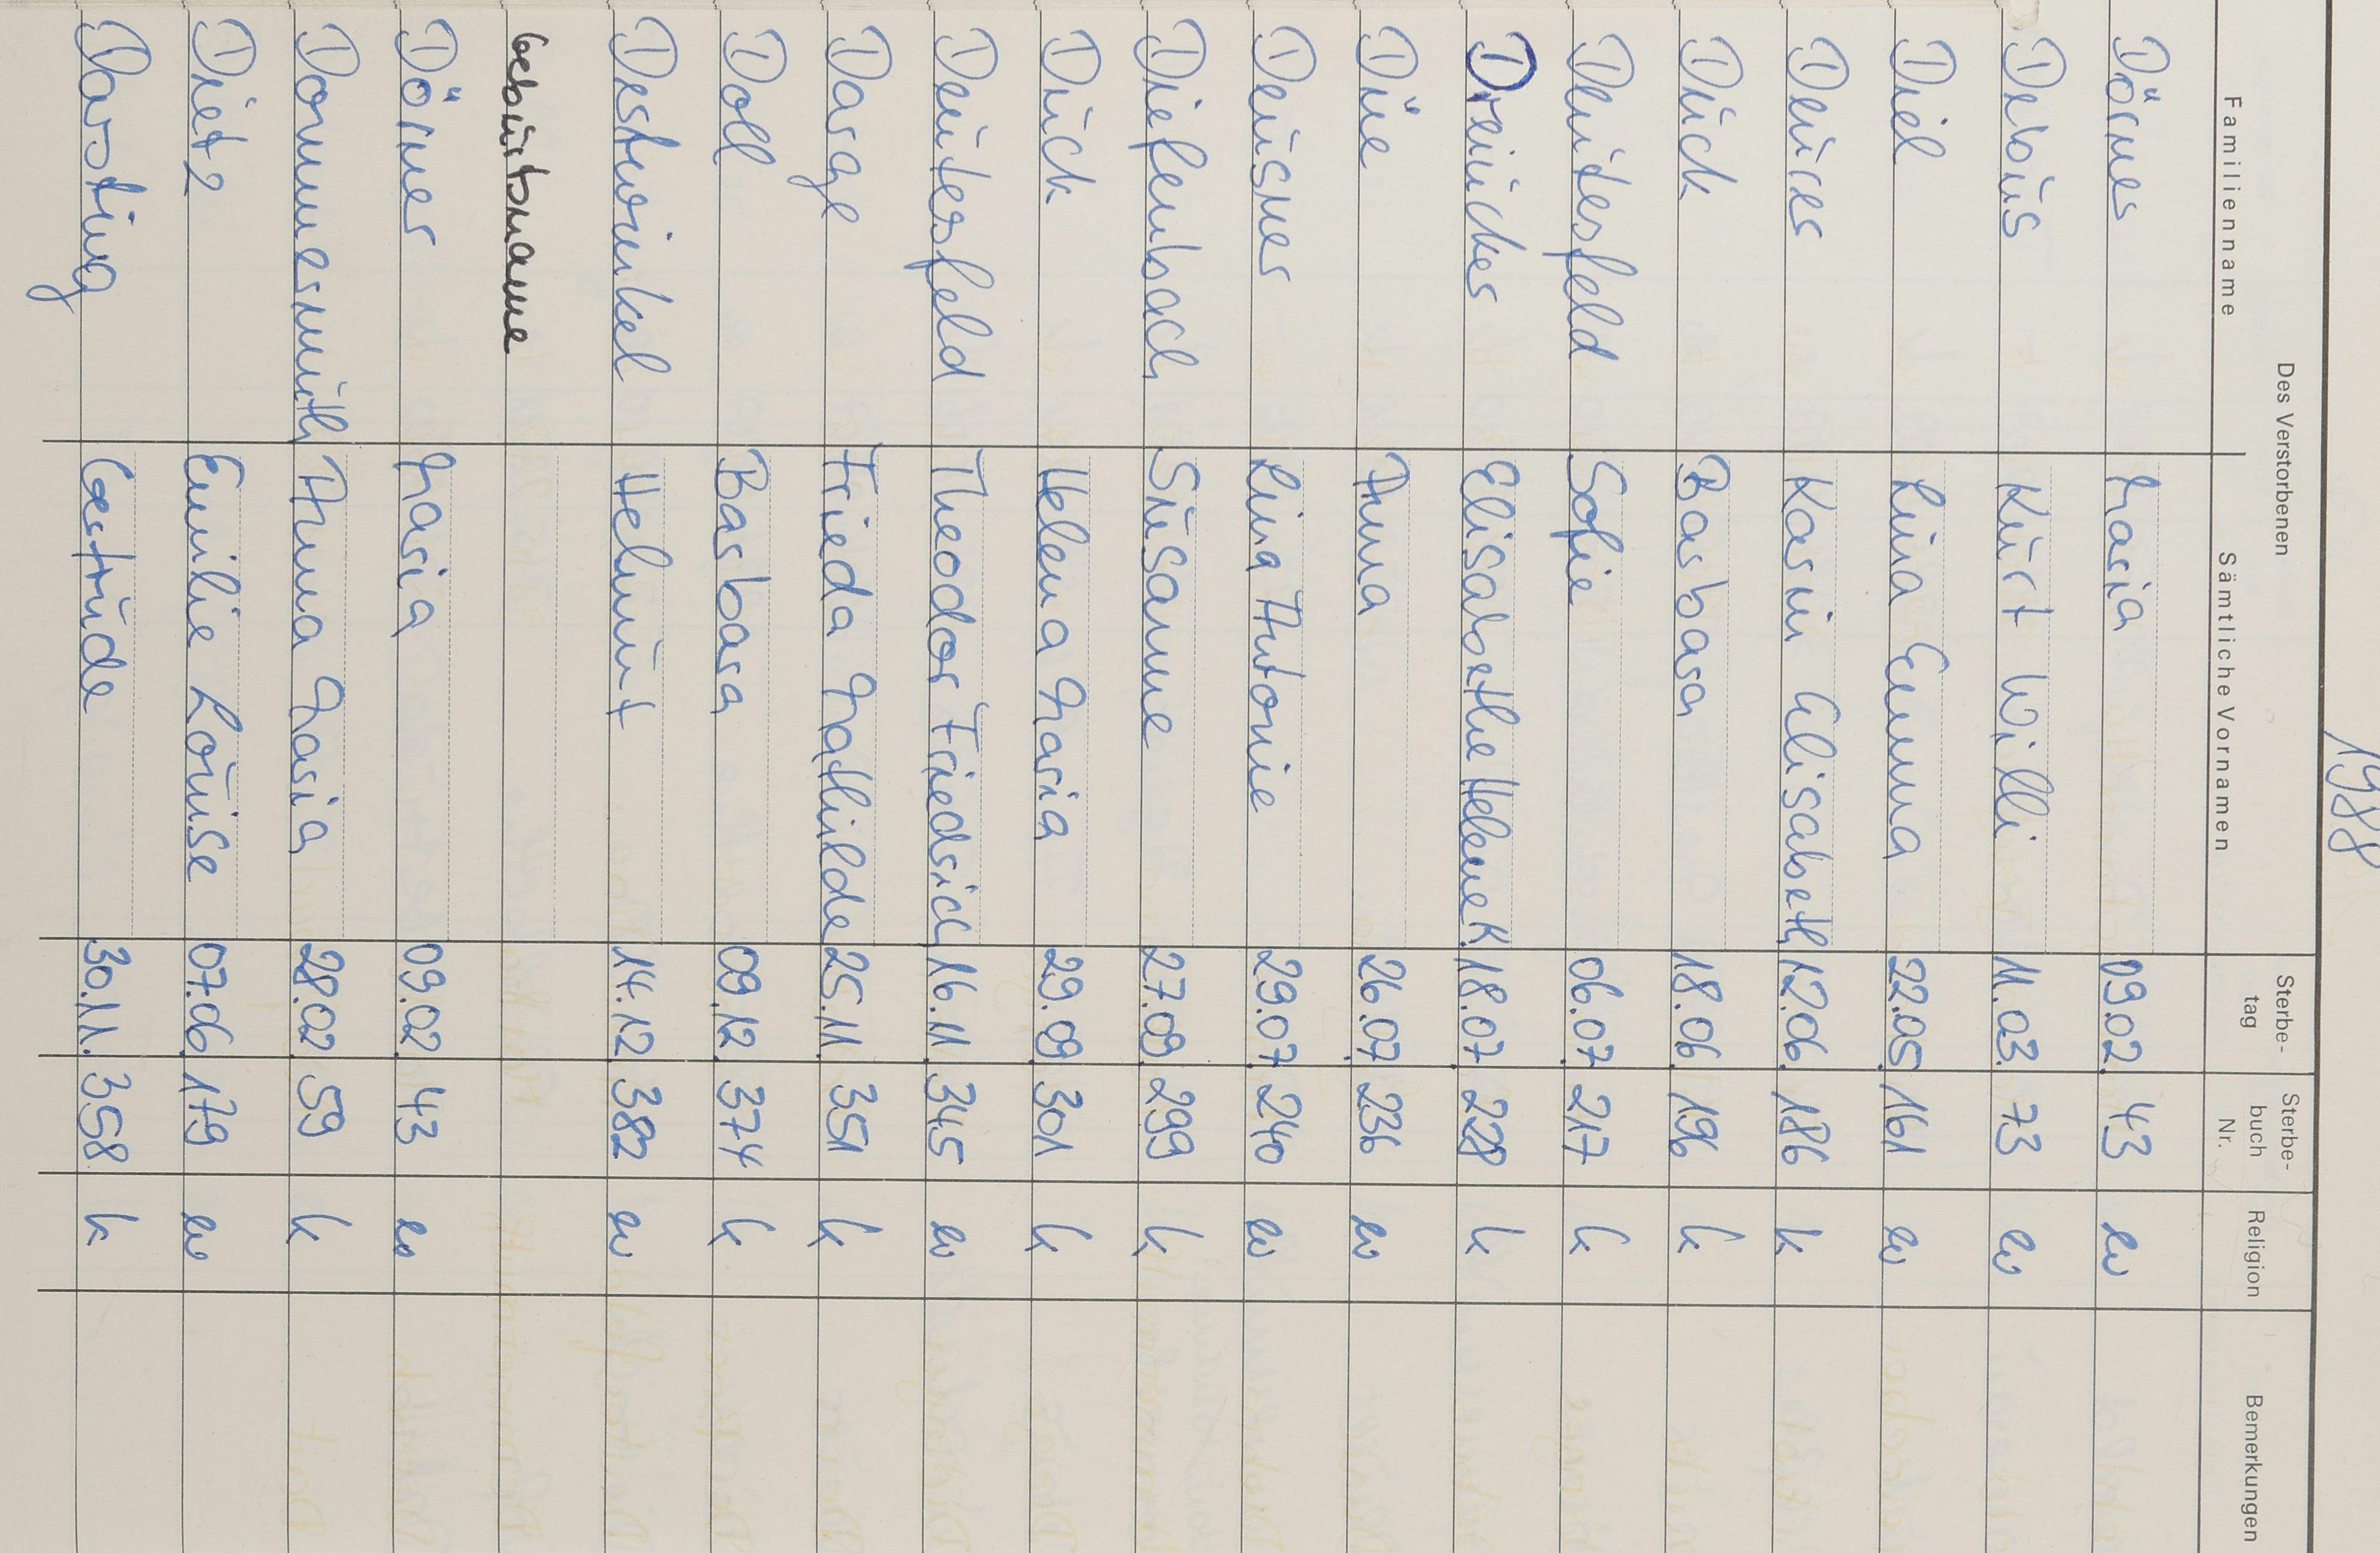 1988
Des Verstorbenen
Familienname Sämtliche Vornamen Sterbe-tag Sterbe-buch Nr. Religion Bemerkungen
Dörner Maria 09.02. 43 ev
Debus Kurt Willi 11.03. 73 ev
Diel Lina Emma 22.05. 161 ev
Deucer Karin Elisabeth 12.06. 186 k
Dück Barbara 18.06. 196 k
Deutesfeld Sofie 06.07. 217 k
Dreiucker Elisabethe Helene K. 18.07. 228 k
Düe Anna 26.07. 236 ev
Deusner Lina Antonie 29.07. 240 ev
Diefenbach Susanne 27.09. 299 k
Dück Helena Maria 29.09. 301 k
Deutesfeld Theodor Friedrich 16.11. 345 ev
Darge Frieda Mathilde 25.11. 351 k
Doll Barbara 09.12. 374 k
Destwinkel Helmut 14.12. 382 ev
Geburtsname
Dörner Maria 09.02. 43 ev
Dommermuth Anna Maria 28.02. 59 k
Dietz Emilie Louise 07.06. 179 ev
Darsting Gertrude 30.11. 358 k